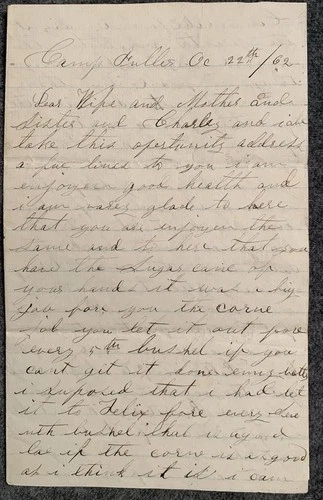 Camp Fuller Oc 22th/62
Dear Wife and Mother and
Sister and Charley and i can
take this oportunity address
a few lines to you i am
enjoyen good health and
i am vary glade to here
that you are enjoyen the
same and to here that you
have the sugar cane of
your hands it was a big
jou fore you the corne
job you let it out fore
every 5th bushel if you
cant get it done eny
i suposed that i had let
it to Felix fore every
nth bushel that is
if the corne is as good
as i think it is i can